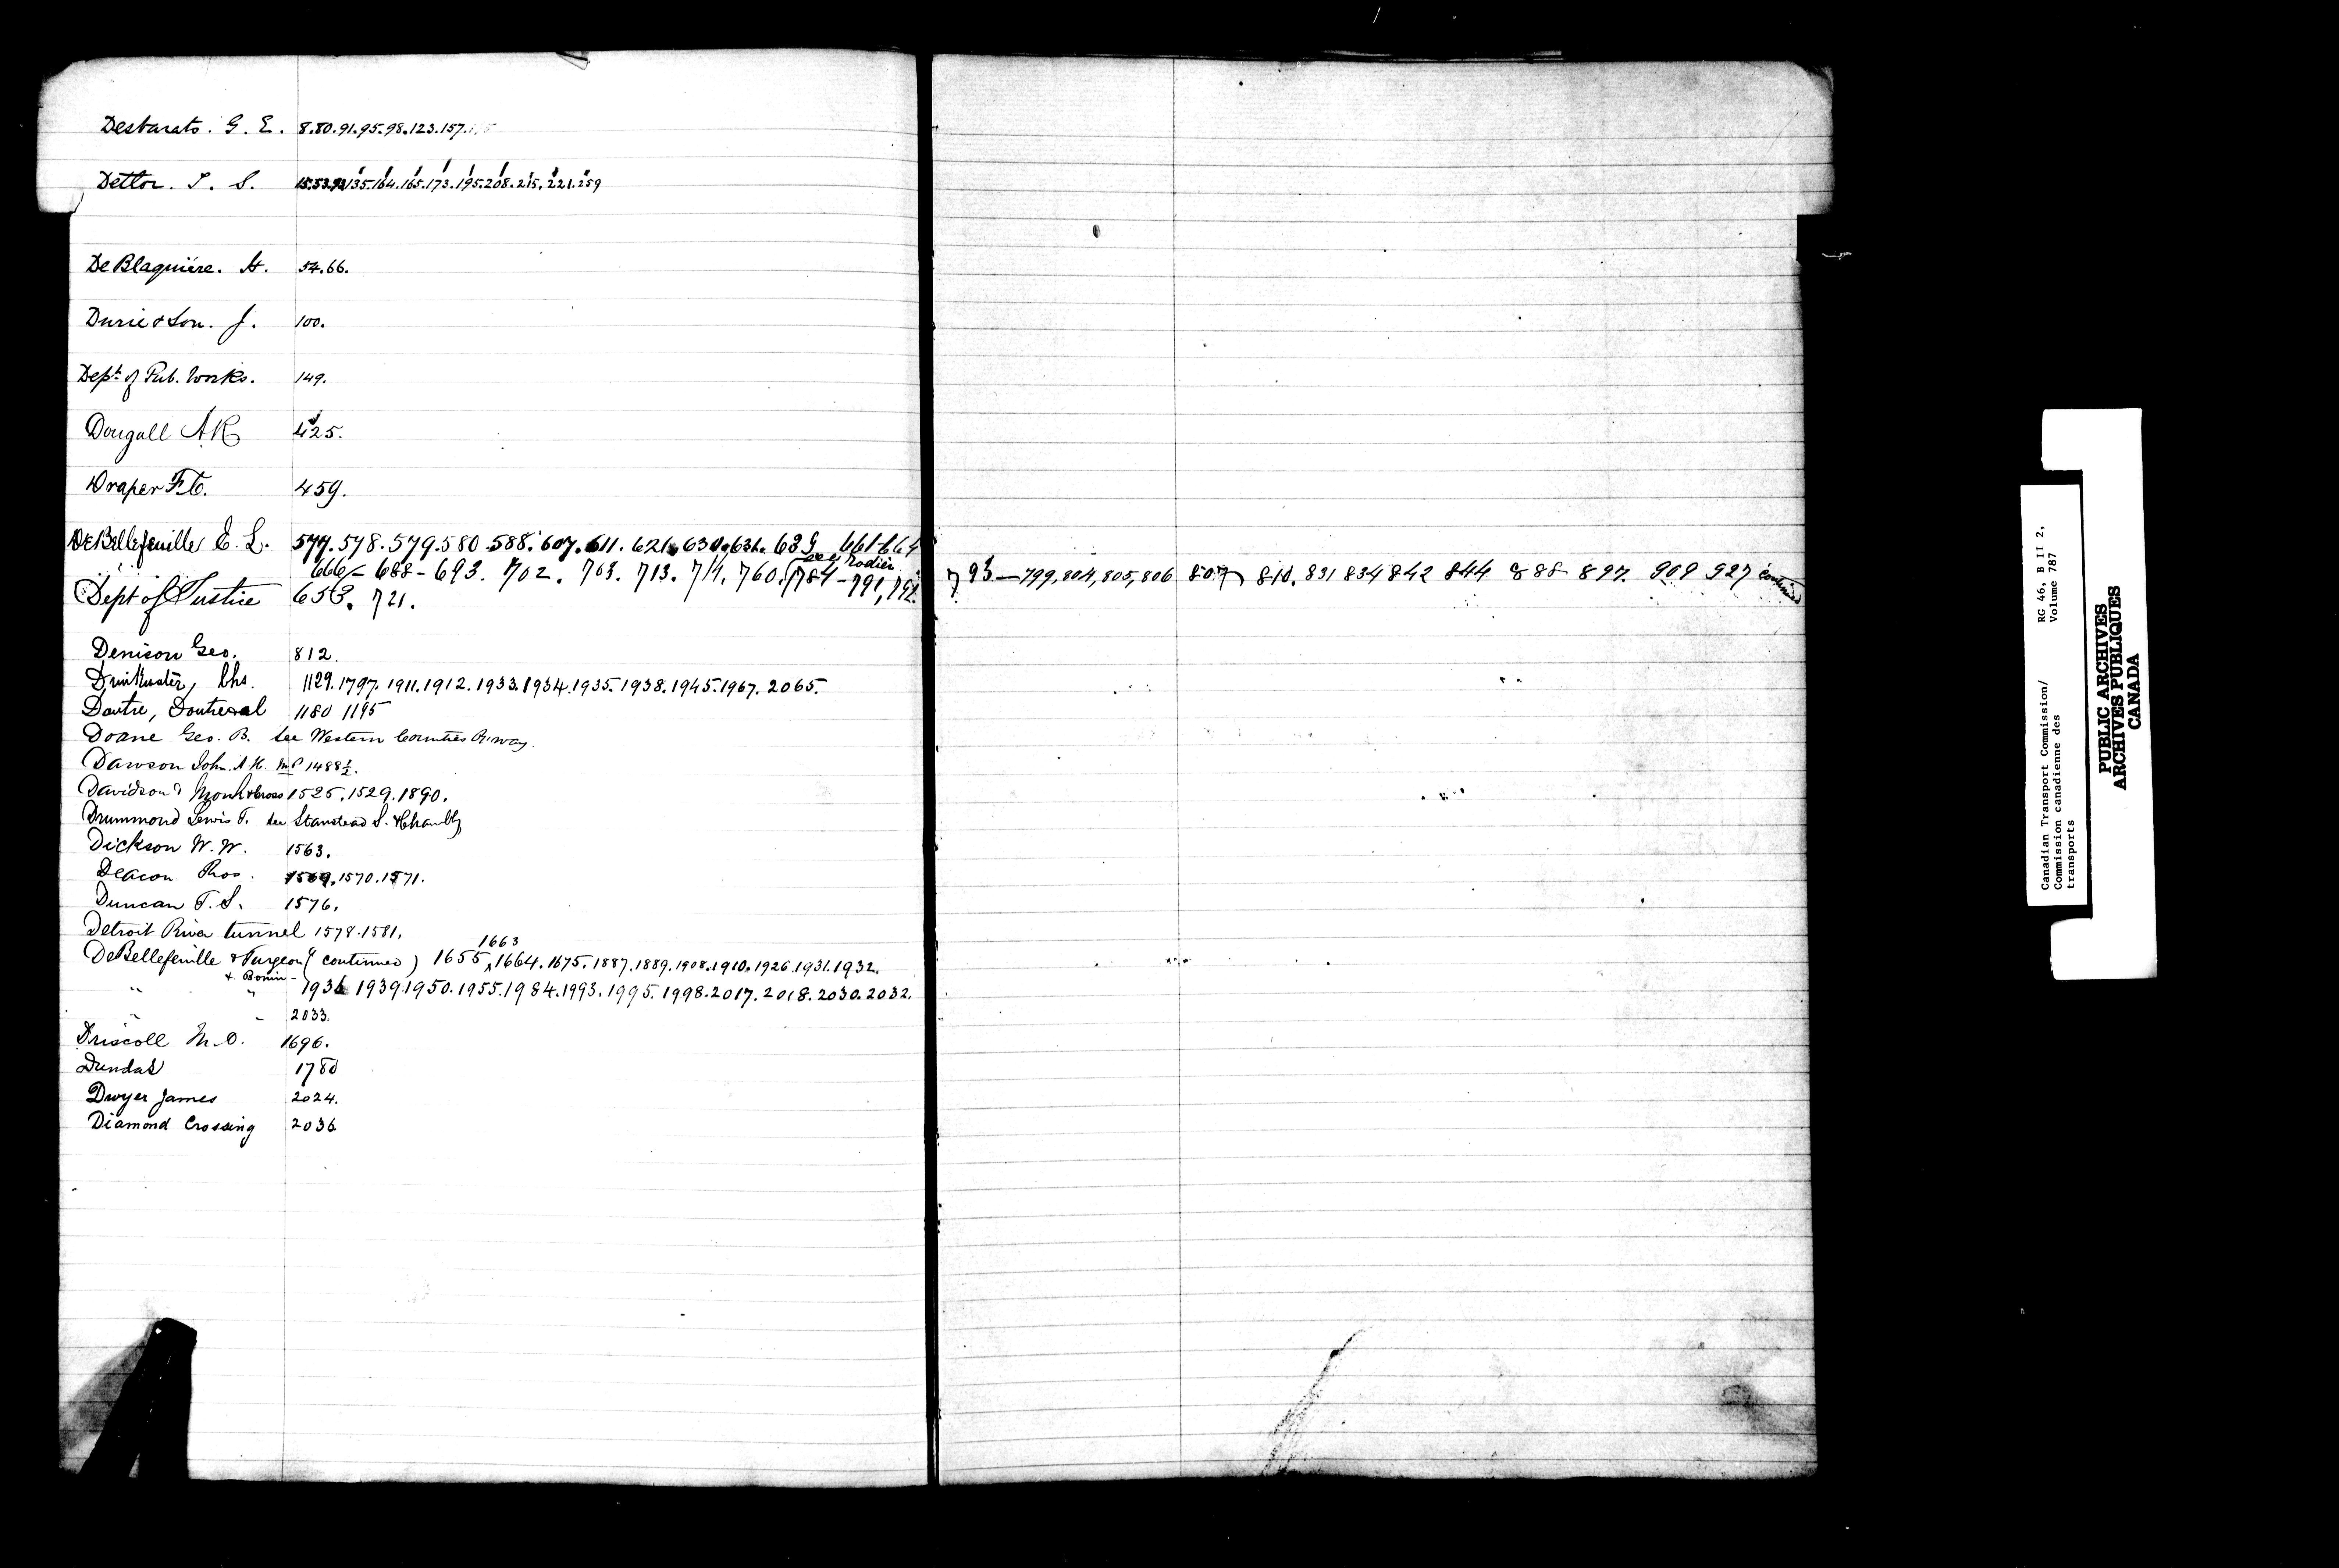 Desbarats. G. E. 8.80.91.95.98.123.157.
Dettor. S. 15.53.92.135.164.165.173.195.208.215.221.259
De Blaquière. H. 54.66.
Durie & Son. J. 100.
Dept. of Pub. Works. 149.
Dougall A K 425.
Draper F. C. 459.
DeBellefeuille E. L. 577.578.579.580.588.607.611.621.630.631.639 661-664
see Rodier
666-688-693. 702. 703. 713. 714, 760. (784-791,792. 793-799,804,805,806 807 810. 831 834 842 844 888 897. 909 927 continued
Dept of Justice 653. 721.
Denison Geo. 812.
Drinkwater, Chs. 1129.1797.1911.1912.1933.1934.1935.1938.1945.1967.2065.
Doutre, 1180 1195
Doane Geo. B. See Western Counties R.way.
Dawson John. A. K. MP 1488½.
Davidson & Monk & Cross 1525.1529.1890.
Drummond Lewis T. see Stanstead S. & Chambly
Dickson W. W. 1563.
Deacon Thos. 1569.1570.1571.
Duncan T. S. 1576.
Detroit River tunnel 1578.1581.
1663
DeBellefeuille & Turgeon (continued) 1655 1664.1675.1887.1889.1908.1910.1926.1931.1932.
& Bonin
" " 1936 1939.1950.1955.1984.1993.1995.1998.2017.2018.2030.2032.
" " 2033.
Driscoll M. O. 1696.
Dundas 1780
Dwyer James 2024.
Diamond Crossing 2036
Canadian Transport Commission/ RG 46, B II 2,
Commission canadienne des Volume 787
transports
PUBLIC ARCHIVES
ARCHIVES PUBLIQUES
CANADA